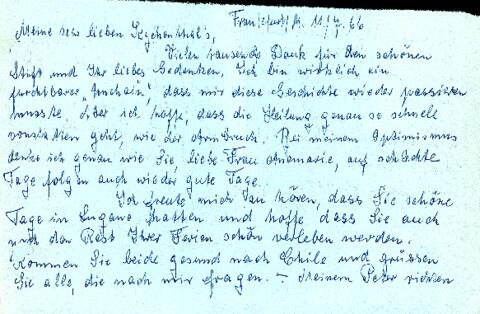 Frankfurt/M. 11/7.66
Meine sehr lieben
Vielen tausend Dank für den schönen
Stift und Ihr liebes Gedenken, ich bin wirklich ein
furchtbarer dass mir diese Geschichte wieder passieren
musste. Aber ich hoffe, dass die Heilung genau so schnell
vonstatten geht, wie der Armbruch. Bei meinem Optimismus
denke ich genau wie Sie, liebe Frau Annemarie, auf schlechte
Tage folgen auch wieder gute Tage.
Ich freute mich zu hören, dass Sie schöne
Tage in Lugano hatten und hoffe dass Sie auch
noch den Rest Ihrer Ferien schön verleben werden.
Kommen Sie beide gesund nach Chile und grüssen
Sie alle, die nach mir fragen. – Meinem Peter richten